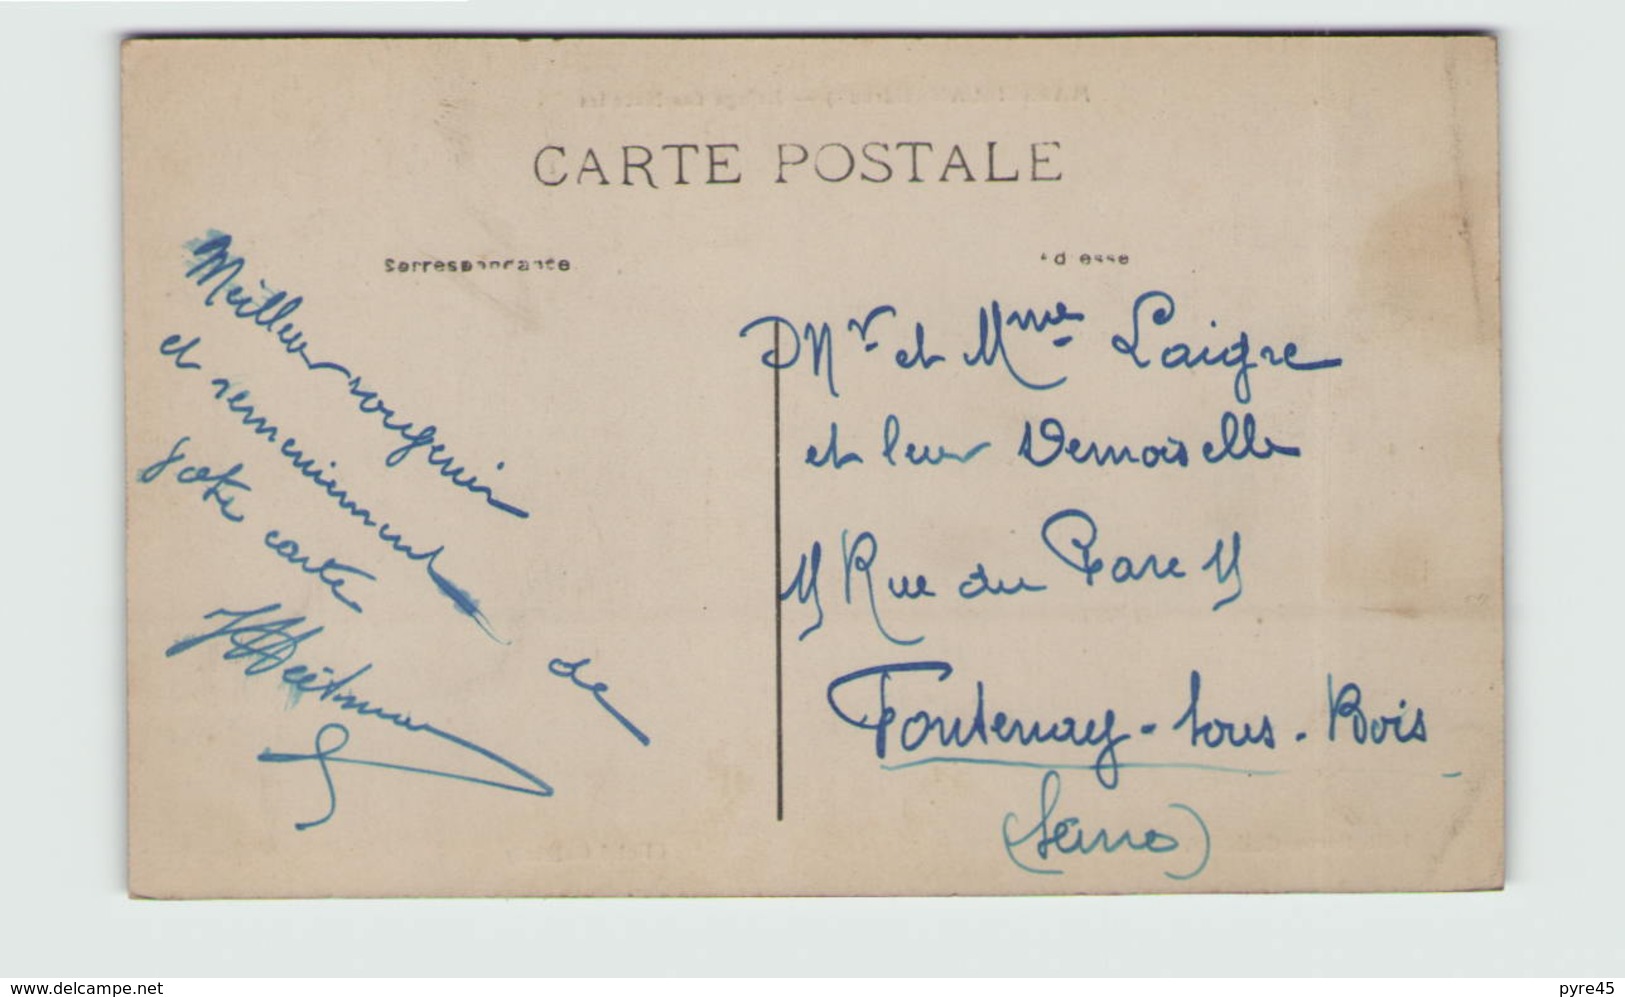 CARTE POSTALE
Correspondance
Adresse
Meilleur souvenir
et remerciement de
votre carte
Mr et Mme Laigre
et leur Demoiselle
Rue du Parc
Fontenay-sous-Bois
(Seine)
www.delcampe.net
pyre45